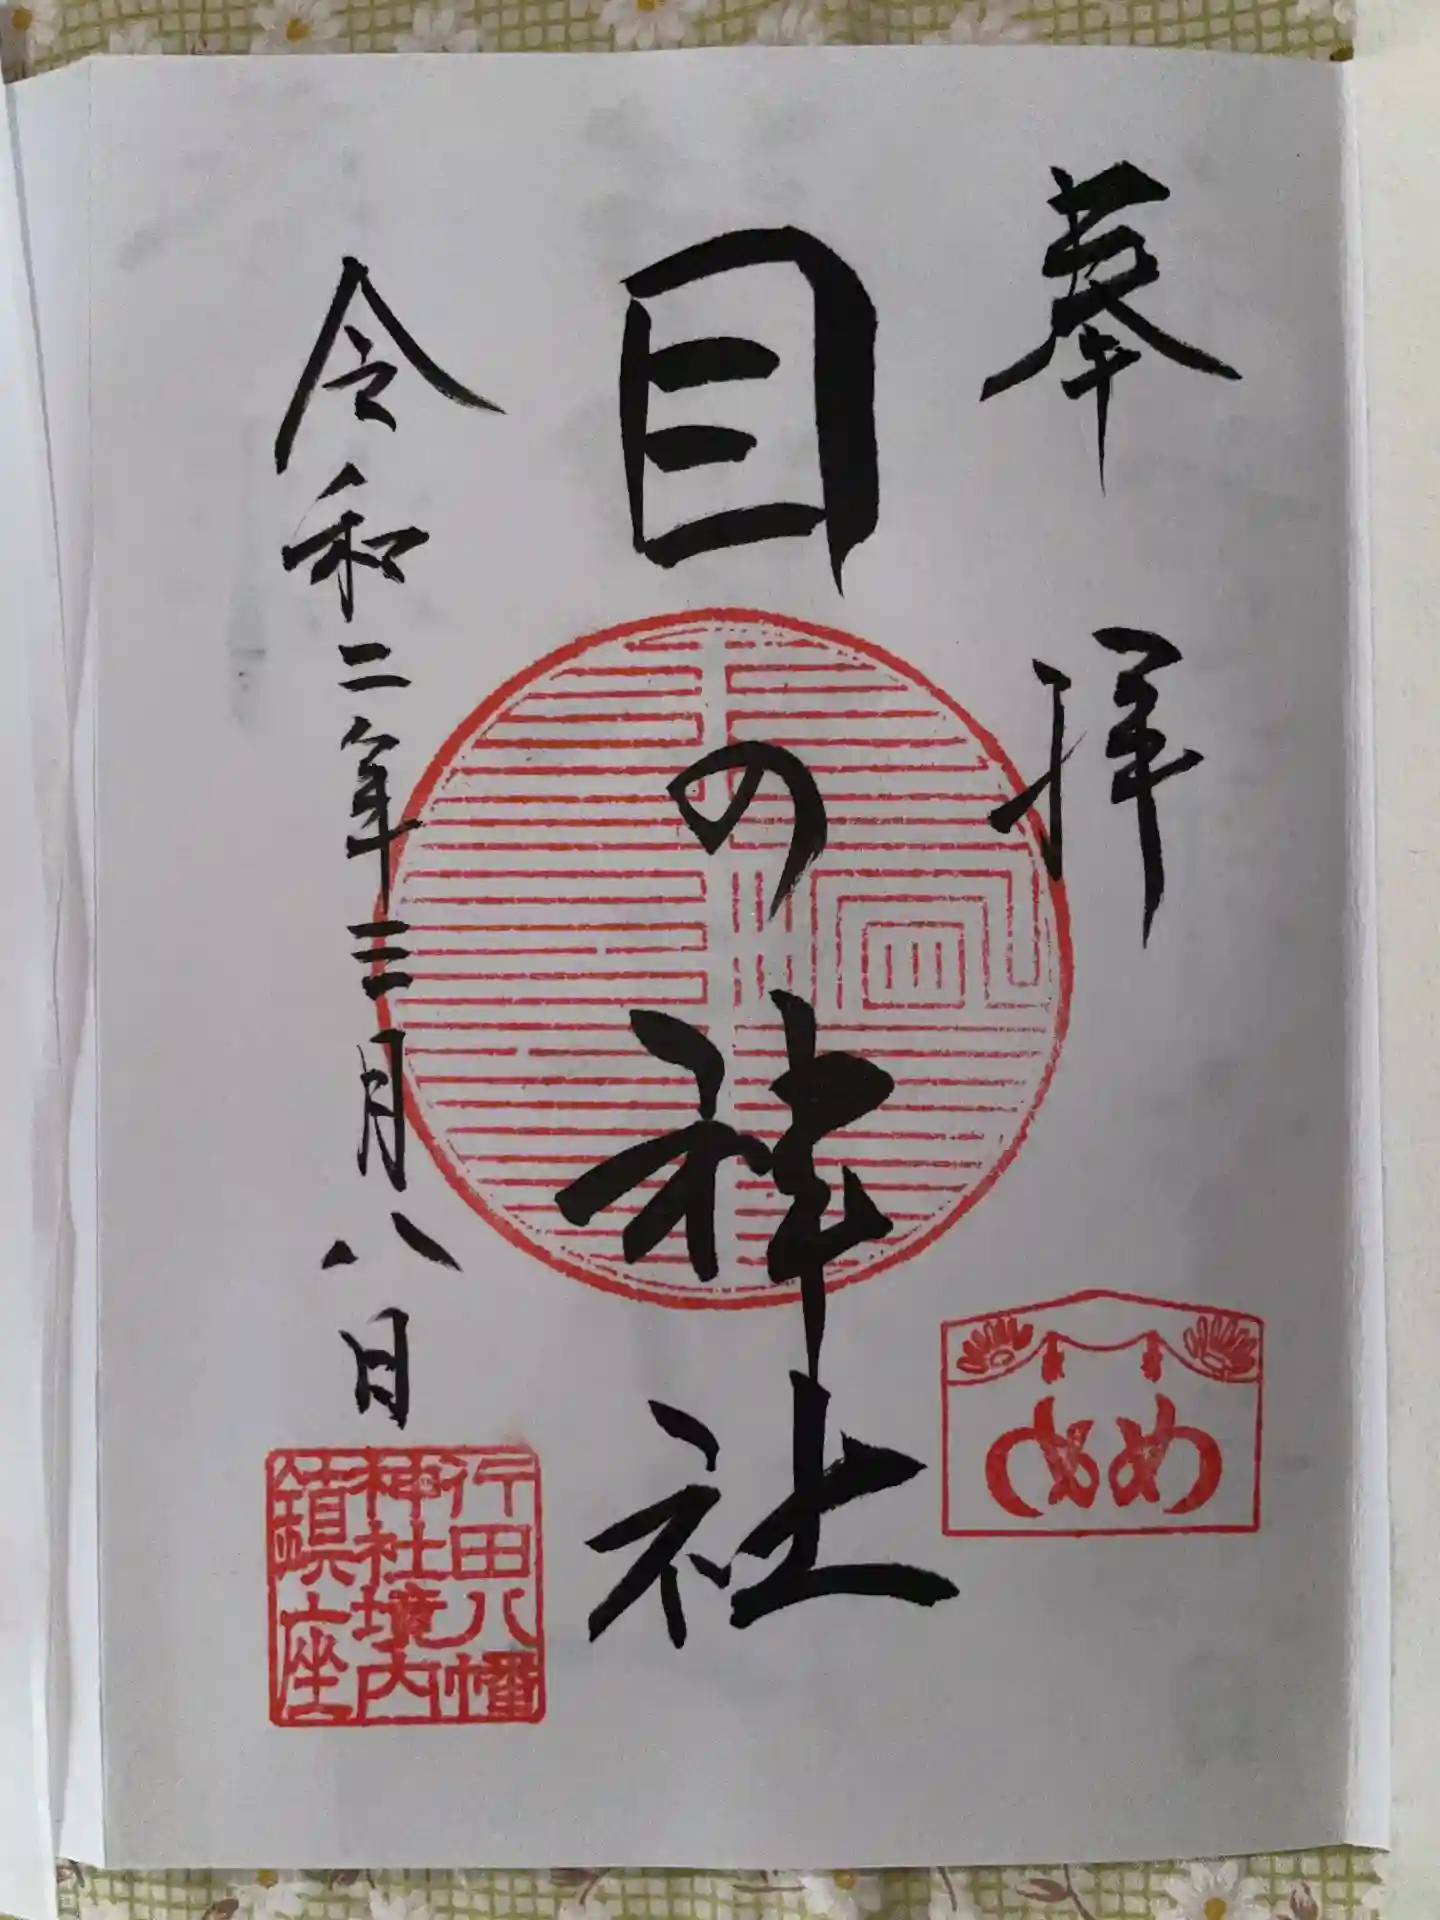 奉拝
目の神社
令和二年三月八日
めめ
行田八幡
神社境内
鎮座